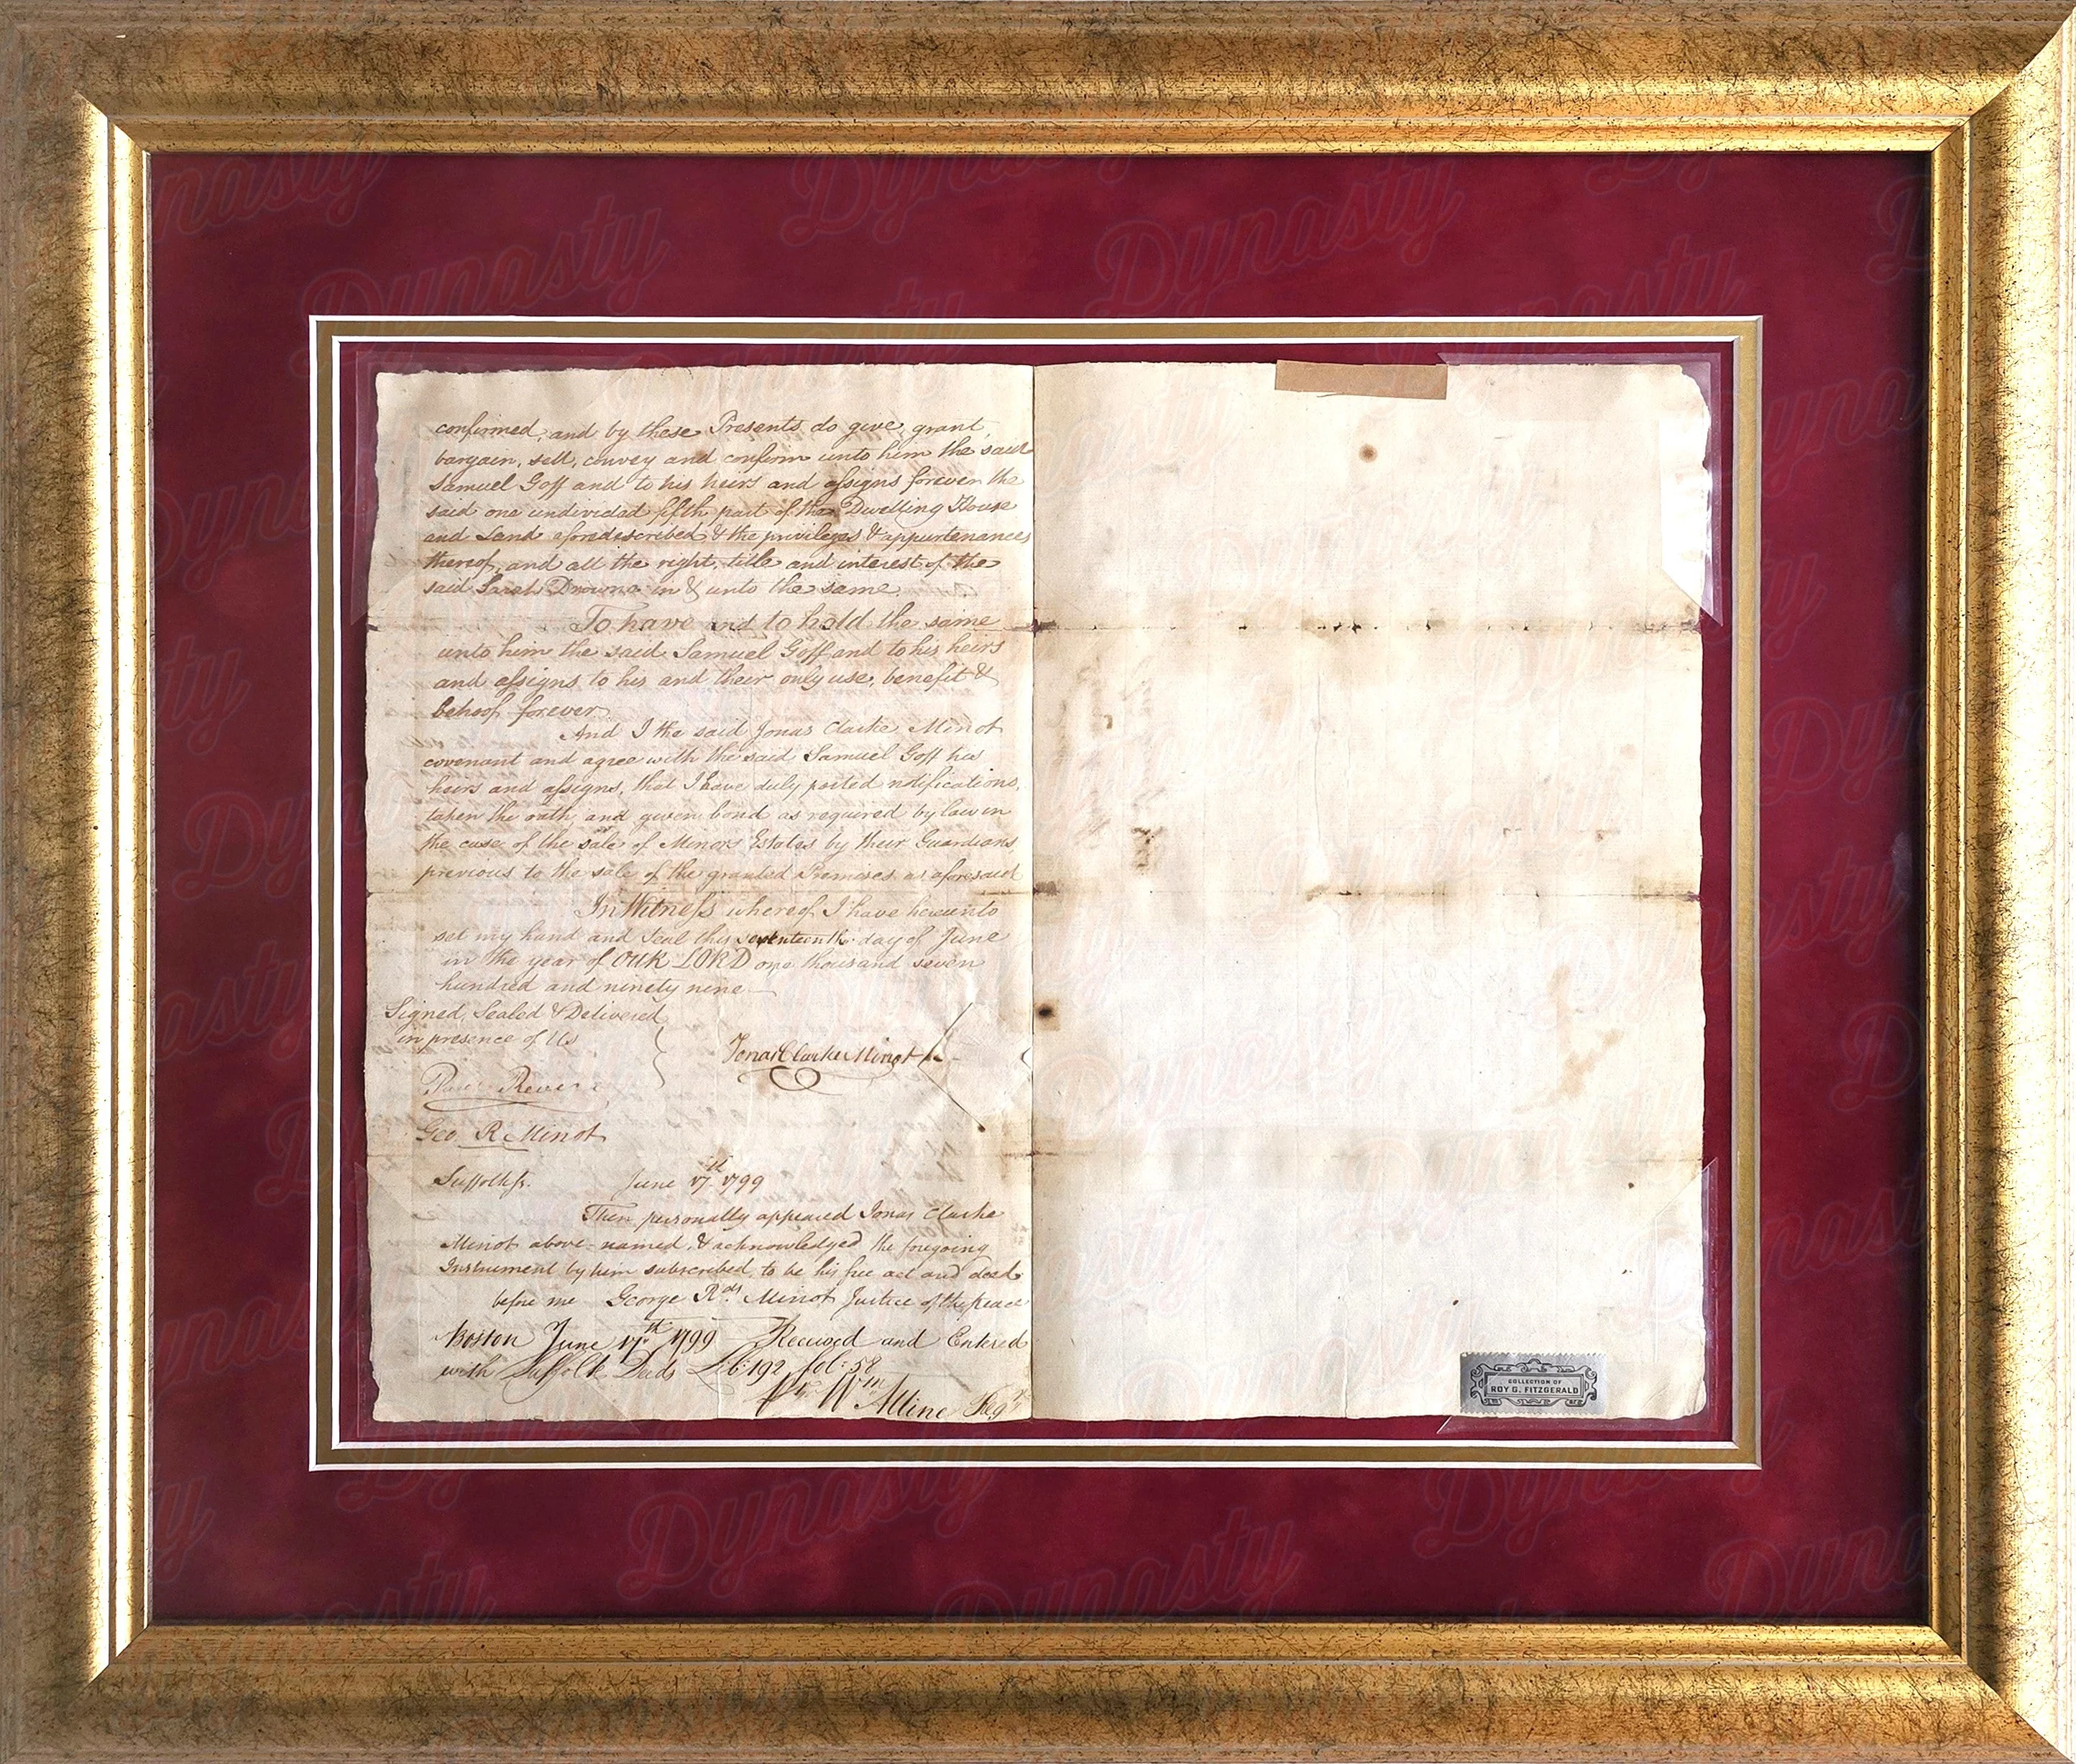 confirmed, and by these Presents do give, grant,
bargain, sell, convey and confirm unto him the said
Samuel Goff and to his heirs and assigns forever the
said one undivided fifth part of the Dwelling House
and Land aforedescribed & the privileges & appurtenances
thereof, and all the right, title and interest of the
said Sarah Drowne in & unto the same.
To have and to hold the same
unto him the said Samuel Goff and to his heirs
and assigns to his and their only use, benefit &
behoof forever.
And I the said Jonas Clarke Minot
covenant and agree with the said Samuel Goff his
heirs and assigns, that I have duly posted notifications,
taken the oath, and given bond as required by law in
the case of the sale of Minors Estates by their Guardians
previous to the sale of the granted Premises as aforesaid
In Witness whereof I have hereunto
set my hand and Seal this seventeenth day of June
in the year of OUR LORD one thousand seven
hundred and ninety nine
Signed, Sealed & Delivered
in presence of Us
Jonas Clarke Minot
Paul Revere
Geo. R. Minot
Suffolk ss. June 17th 1799
Then personally appeared Jonas Clarke
Minot above-named, & acknowledged the foregoing
Instrument by him subscribed, to be his free act and deed
before me George Rds Minot Justice of the peace
Boston June 17th 1799 Received and Entered
with Suffolk Deeds Lib: 192 fol: 58
Wm Alline Regr
COLLECTION OF
ROY G. FITZGERALD
Dynasty